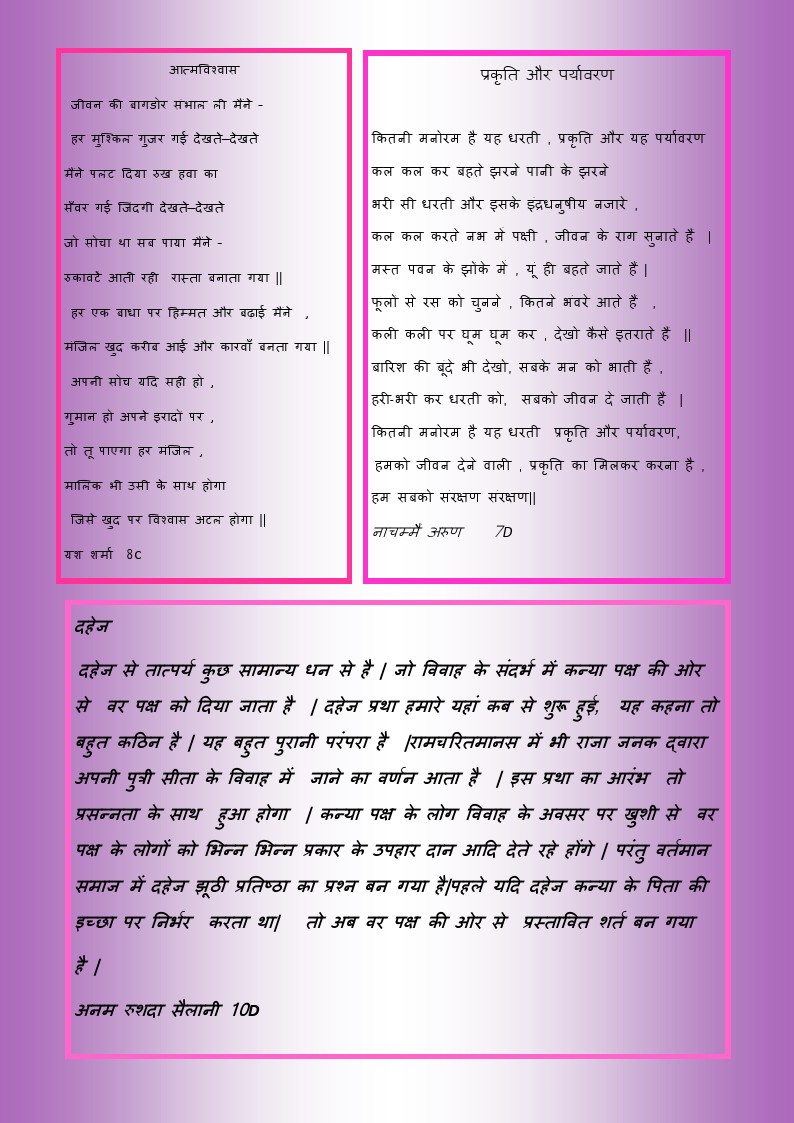 आत्मविश्वास
जीवन की बागडोर संभाल ली मैंने -
हर मुश्किल गुजर गई देखते–देखते
मैंने पलट दिया रुख हवा का
सँवर गई जिंदगी देखते–देखते
जो सोचा था सब पाया मैंने -
रुकावटें आती रही रास्ता बनाता गया ||
हर एक बाधा पर हिम्मत और बढ़ाई मैंने ,
मंजिल खुद करीब आई और कारवाँ बनता गया ||
अपनी सोच यदि सही हो ,
गुमान हो अपने इरादों पर ,
तो तू पाएगा हर मंजिल ,
मालिक भी उसी के साथ होगा
जिसे खुद पर विश्वास अटल होगा ||
यश शर्मा 8C
प्रकृति और पर्यावरण
कितनी मनोरम है यह धरती , प्रकृति और यह पर्यावरण
कल कल कर बहते झरने पानी के झरने
भरी सी धरती और इसके इंद्रधनुषीय नजारे ,
कल कल करते नभ में पक्षी , जीवन के राग सुनाते हैं |
मस्त पवन के झोंके में , यूं ही बहते जाते हैं |
फूलों से रस को चुनने , कितने भंवरे आते हैं ,
कली कली पर घूम घूम कर , देखो कैसे इतराते हैं ||
बारिश की बूंदे भी देखो, सबके मन को भाती हैं ,
हरी-भरी कर धरती को, सबको जीवन दे जाती हैं |
कितनी मनोरम है यह धरती प्रकृति और पर्यावरण,
हमको जीवन देने वाली , प्रकृति का मिलकर करना है ,
हम सबको संरक्षण संरक्षण||
नाचम्मै अरुण 7D
दहेज
दहेज से तात्पर्य कुछ सामान्य धन से है | जो विवाह के संदर्भ में कन्या पक्ष की ओर
से वर पक्ष को दिया जाता है | दहेज प्रथा हमारे यहां कब से शुरू हुई, यह कहना तो
बहुत कठिन है | यह बहुत पुरानी परंपरा है |रामचरितमानस में भी राजा जनक द्वारा
अपनी पुत्री सीता के विवाह में जाने का वर्णन आता है | इस प्रथा का आरंभ तो
प्रसन्नता के साथ हुआ होगा | कन्या पक्ष के लोग विवाह के अवसर पर खुशी से वर
पक्ष के लोगों को भिन्न भिन्न प्रकार के उपहार दान आदि देते रहे होंगे | परंतु वर्तमान
समाज में दहेज झूठी प्रतिष्ठा का प्रश्न बन गया है|पहले यदि दहेज कन्या के पिता की
इच्छा पर निर्भर करता था| तो अब वर पक्ष की ओर से प्रस्तावित शर्त बन गया
है |
अनम रुशदा सैलानी 10D